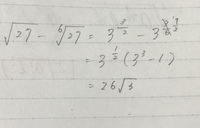 √27 - ⁶√27 = 3^{3/2} - 3^{1/2}
= 3^{1/2} (3³ - 1)
= 26√3